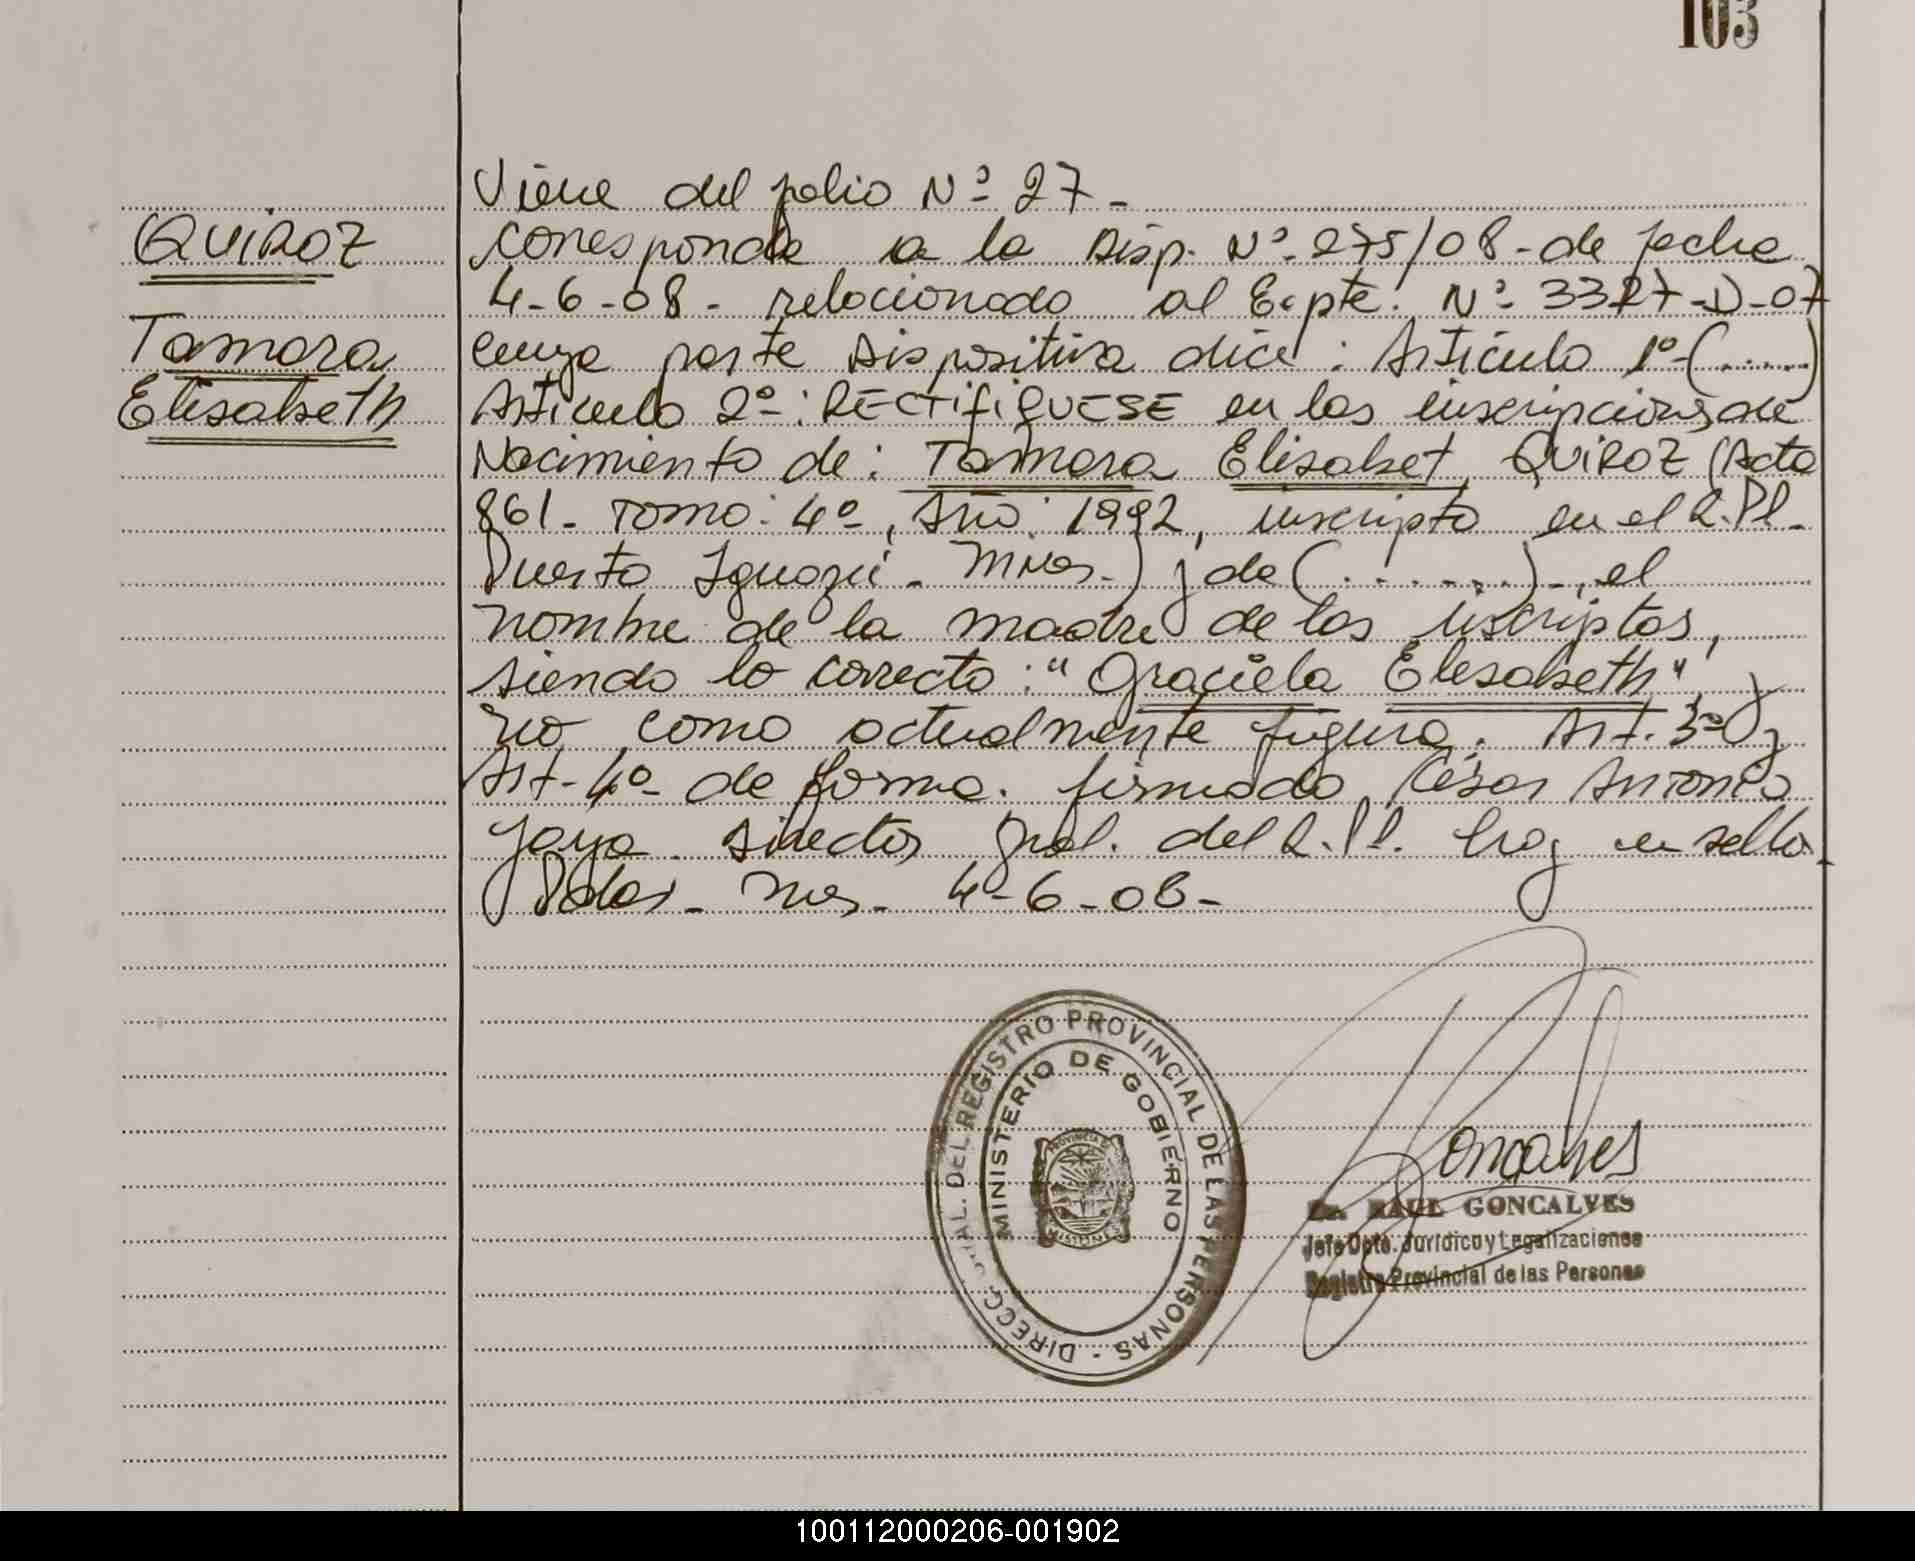 103
Viene del folio Nº 27-
QUIROZ
Corresponde a la Disp. Nº 275/08 - de fecha
4-6-08 - relacionado al Expte. Nº 3327-D-07
Tamara
cuya parte Dispositiva dice: Artículo 1º-(......)
Elisabeth
Artículo 2º: RECTIFIQUESE en las inscripciones de
Nacimiento de: Tamara Elisabet QUIROZ (Acta
861- Tomo: 4º, Año 1992, inscripto en el R.P.P.-
Puerto Iguazú - Mnes.) y de (.......)-, el
nombre de la madre de los inscriptos,
siendo lo correcto: "Graciela Elisabeth" y
no como actualmente figura. Art. 3º y
Art-4º de forma. firmado César Antonio
Director Gral. del R.P.P. hay un sello
Pdas - Mnes. 4-6-08-
DIRECC. GRAL. DEL REGISTRO PROVINCIAL DE LAS PERSONAS -
MINISTERIO DE GOBIERNO
PROVINCIA DE
MISIONES
Goncalves
Dr. RAUL GONCALVES
Jefe Dpto. Jurídico y Legalizaciones
Registro Provincial de las Personas
100112000206-001902